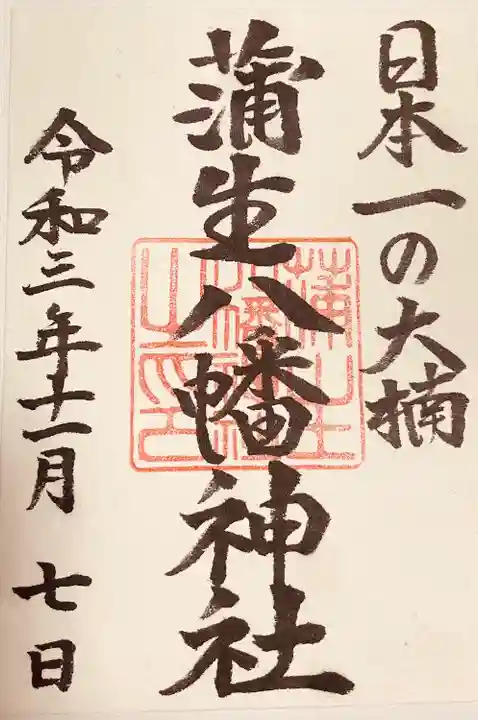 日本一の大楠
蒲生八幡神社
蒲生八幡神社之印
令和三年十一月 七日